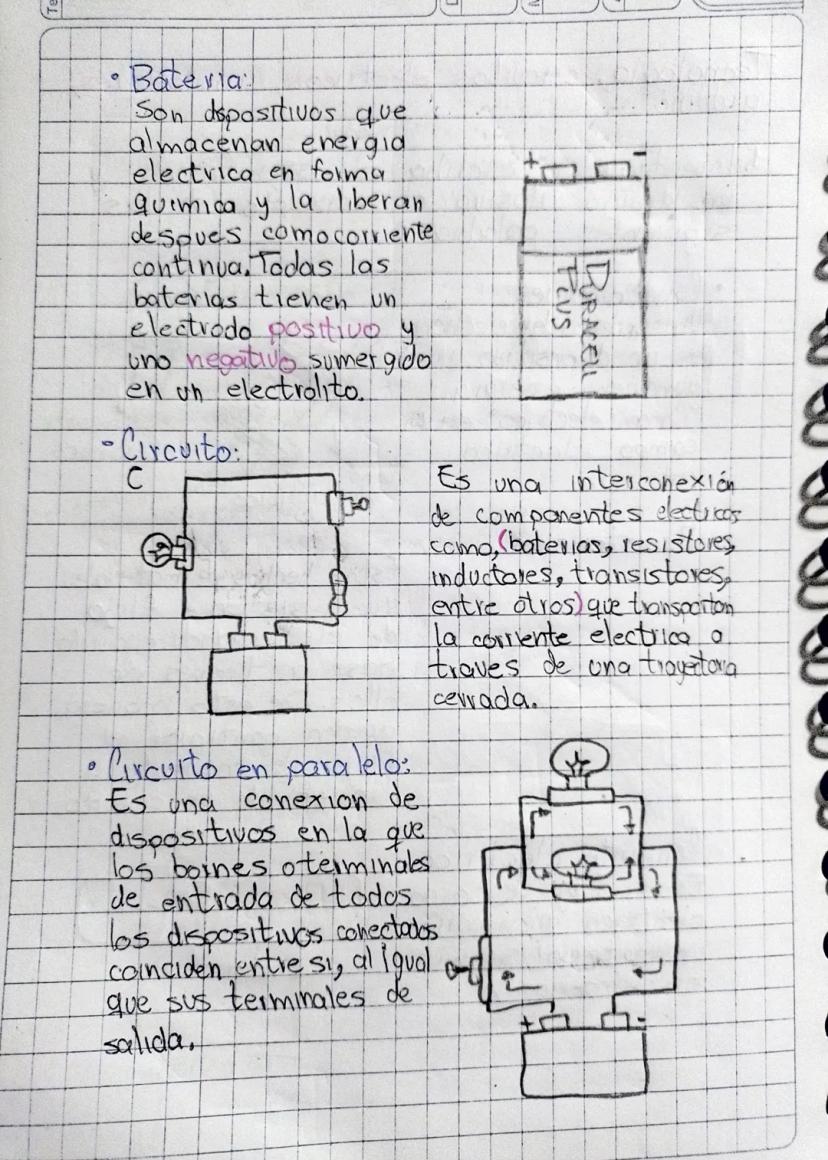 • Bateria:
Son dispositivos que
almacenan energia
electrica en forma
quimica y la liberan
despues como corriente
continua. Todas las
baterias tienen un
electrodo positivo y
uno negativo sumergido
en un electrolito.
+ -
DURACELL
PLUS
- Circuito:
C
Es una interconexión
de componentes electricos
como, (baterias, resistores,
inductores, transistores,
entre otros) que transportan
la corriente electrica a
traves de una trayectoria
cerrada.
• Circuito en paralelo:
Es una conexion de
dispositivos en la que
los bornes o terminales
de entrada de todos
los dispositivos conectados
coinciden entre si, al igual
que sus terminales de
salida.
+ -